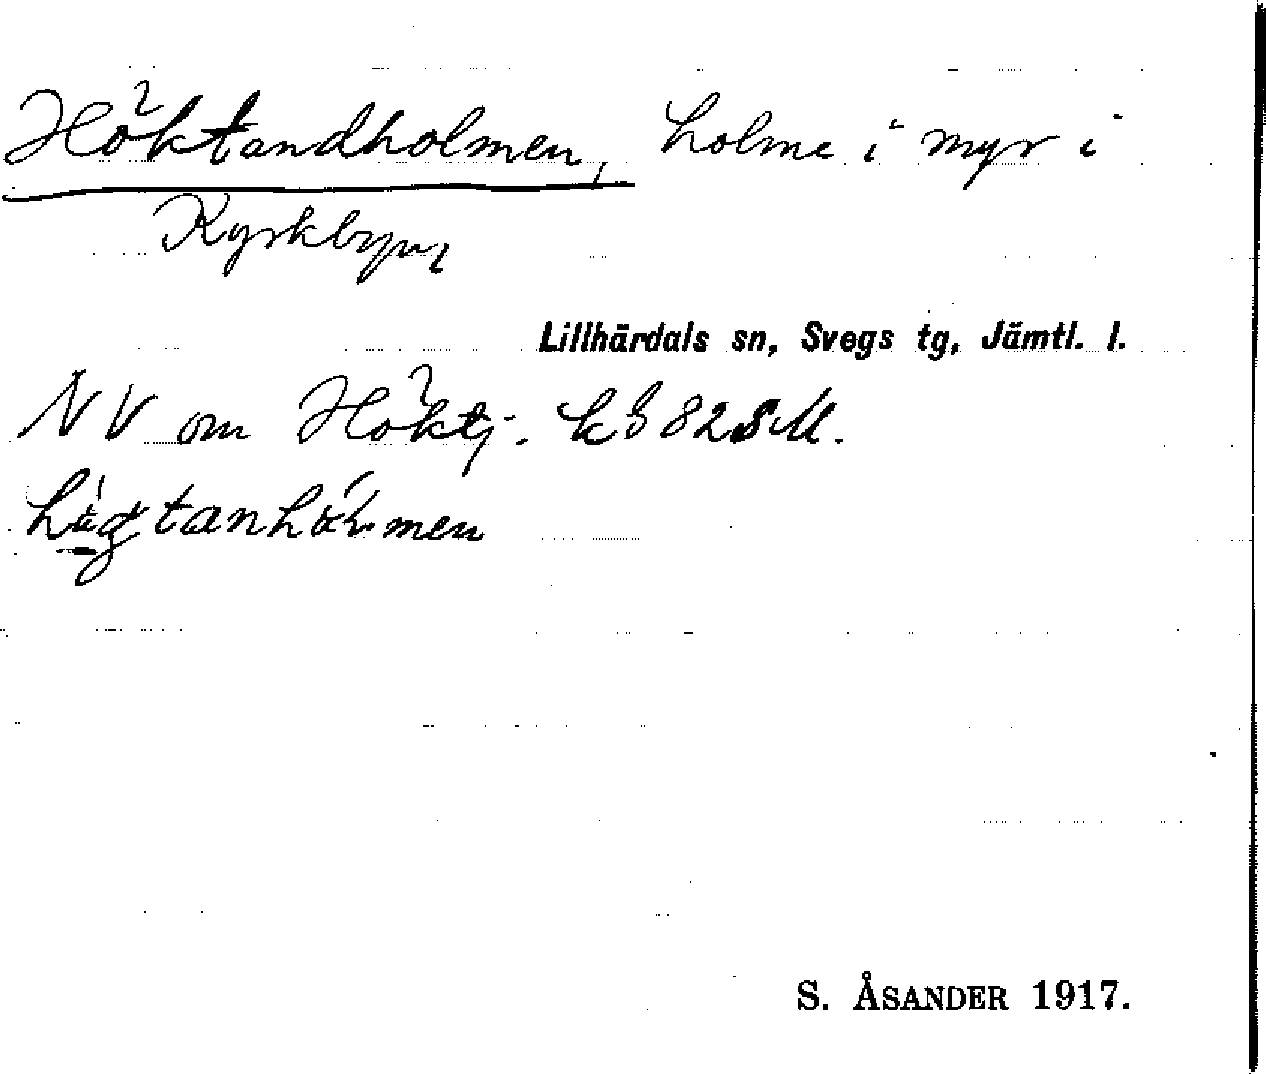 Höktandholmen, holme i myr i
Kyrkbyn,
Lillhärdals sn, Svegs tg, Jämtl. l.
NV om Höktj. k 828 M.
S. ÅSANDER 1917.